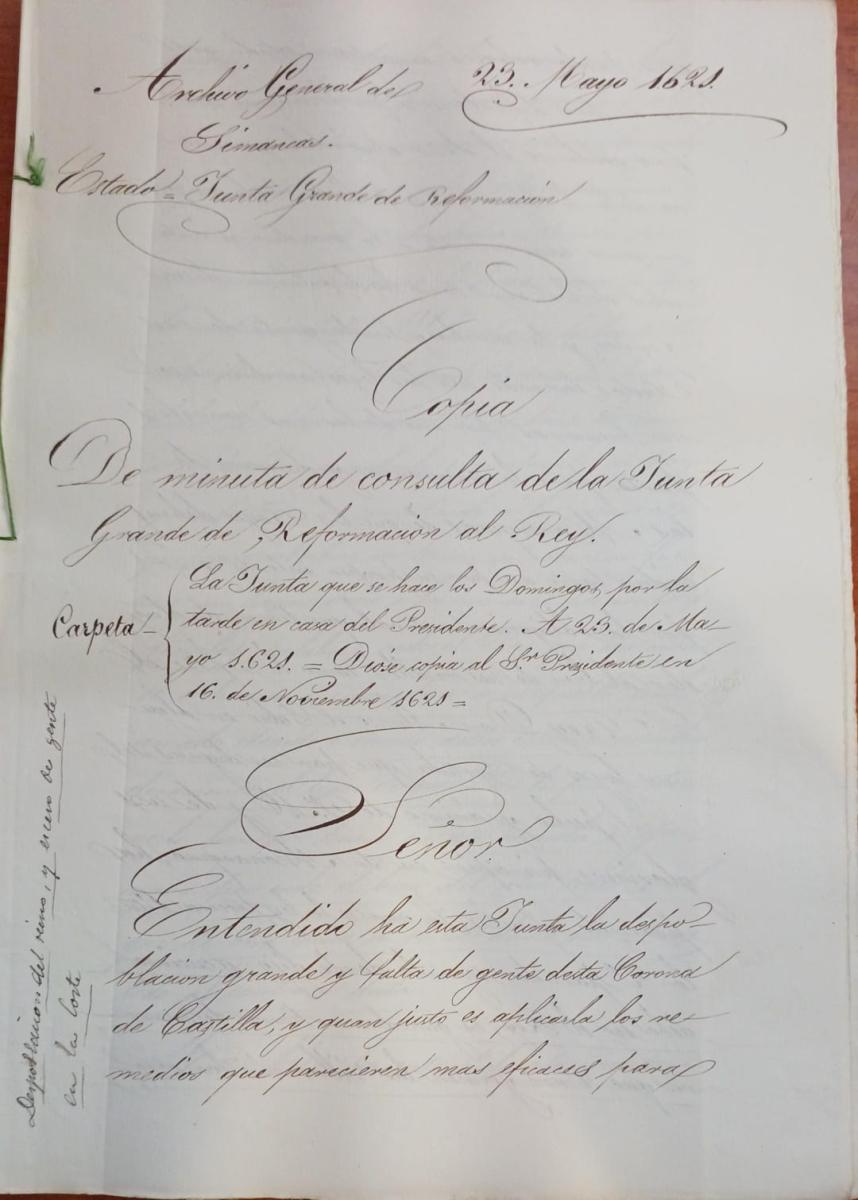 Archivo General de
Simancas.
23. Mayo 1621.
Estado = Junta Grande de Reformación
Copia
De minuta de consulta de la Junta
Grande de Reformacion al Rey.
Carpeta =
La Junta que se hace los Domingos, por la
tarde en casa del Presidente. A 23. de Ma-
yo 1.621. = Diose copia al Sr. Presidente en
16. de Noviembre 1621 =
Señor.
Entendido ha esta Junta la despo-
blacion grande y falta de gente desta Corona
de Castilla, y quan justo es aplicarla los re-
medios que parecieren mas eficaces para
Despoblación del reino, y exceso de gente
en la Corte